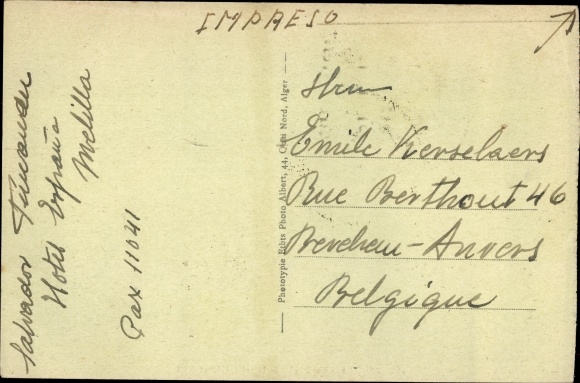 IMPRESO
Salvador Fernandez
Hotel España
Melilla
Pax 11041
Phototypie Etabts Photo Albert, 44, Cité Nord, Alger
Emile Kerselaers
Rue Berthout 46
Berchem-Anvers
Belgique